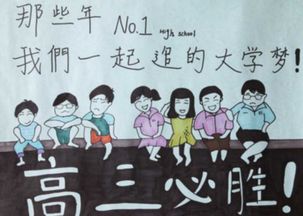 那些年 No.1 High school
我們一起追的大学梦!
高三必胜!